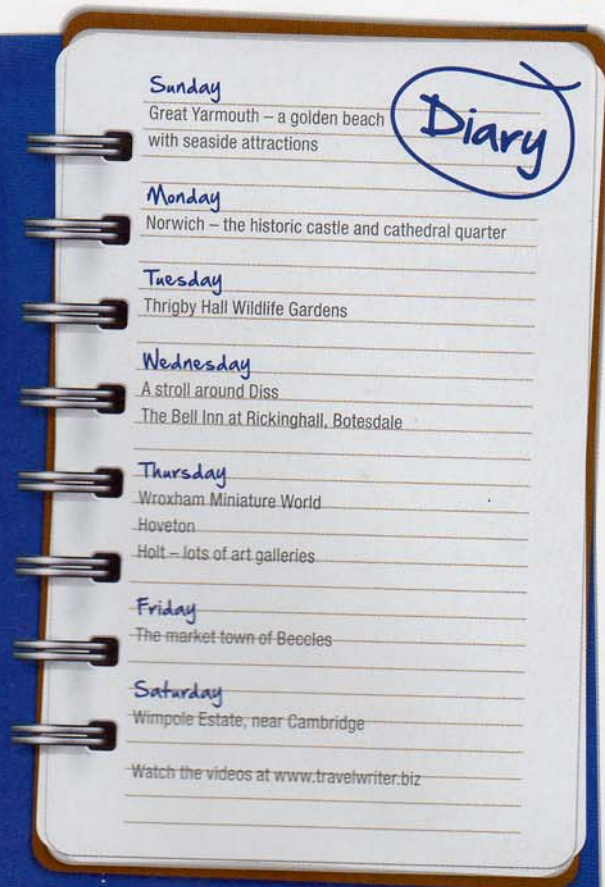 Diary
Sunday
Great Yarmouth – a golden beach
with seaside attractions
Monday
Norwich – the historic castle and cathedral quarter
Tuesday
Thrigby Hall Wildlife Gardens
Wednesday
A stroll around Diss
The Bell Inn at Rickinghall, Botesdale
Thursday
Wroxham Miniature World
Hoveton
Holt – lots of art galleries
Friday
The market town of Beccles
Saturday
Wimpole Estate, near Cambridge
Watch the videos at www.travelwriter.biz